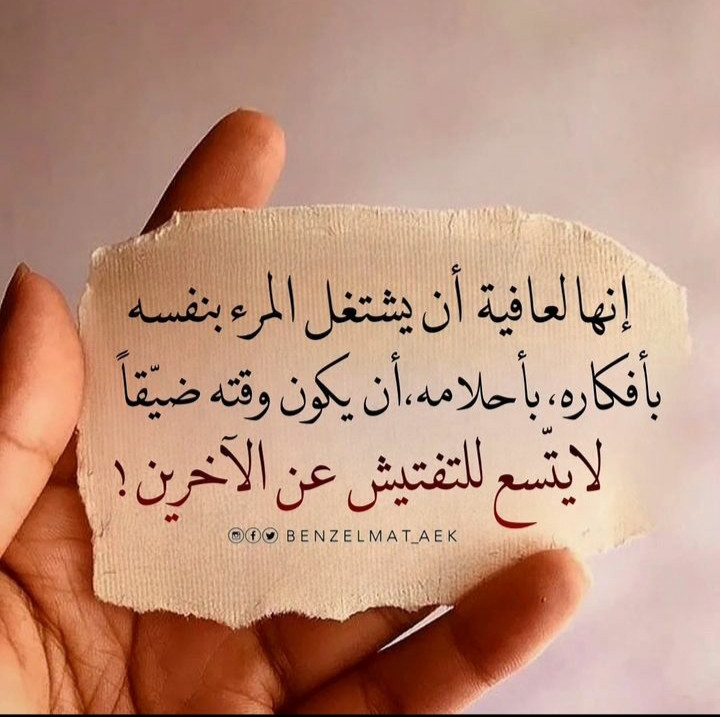 إنها لعافية أن يشتغل المرء بنفسه
بأفكاره، بأحلامه، أن يكون وقته ضيّقاً
لا يتّسع للتفتيش عن الآخرين !
BENZELMAT_AEK